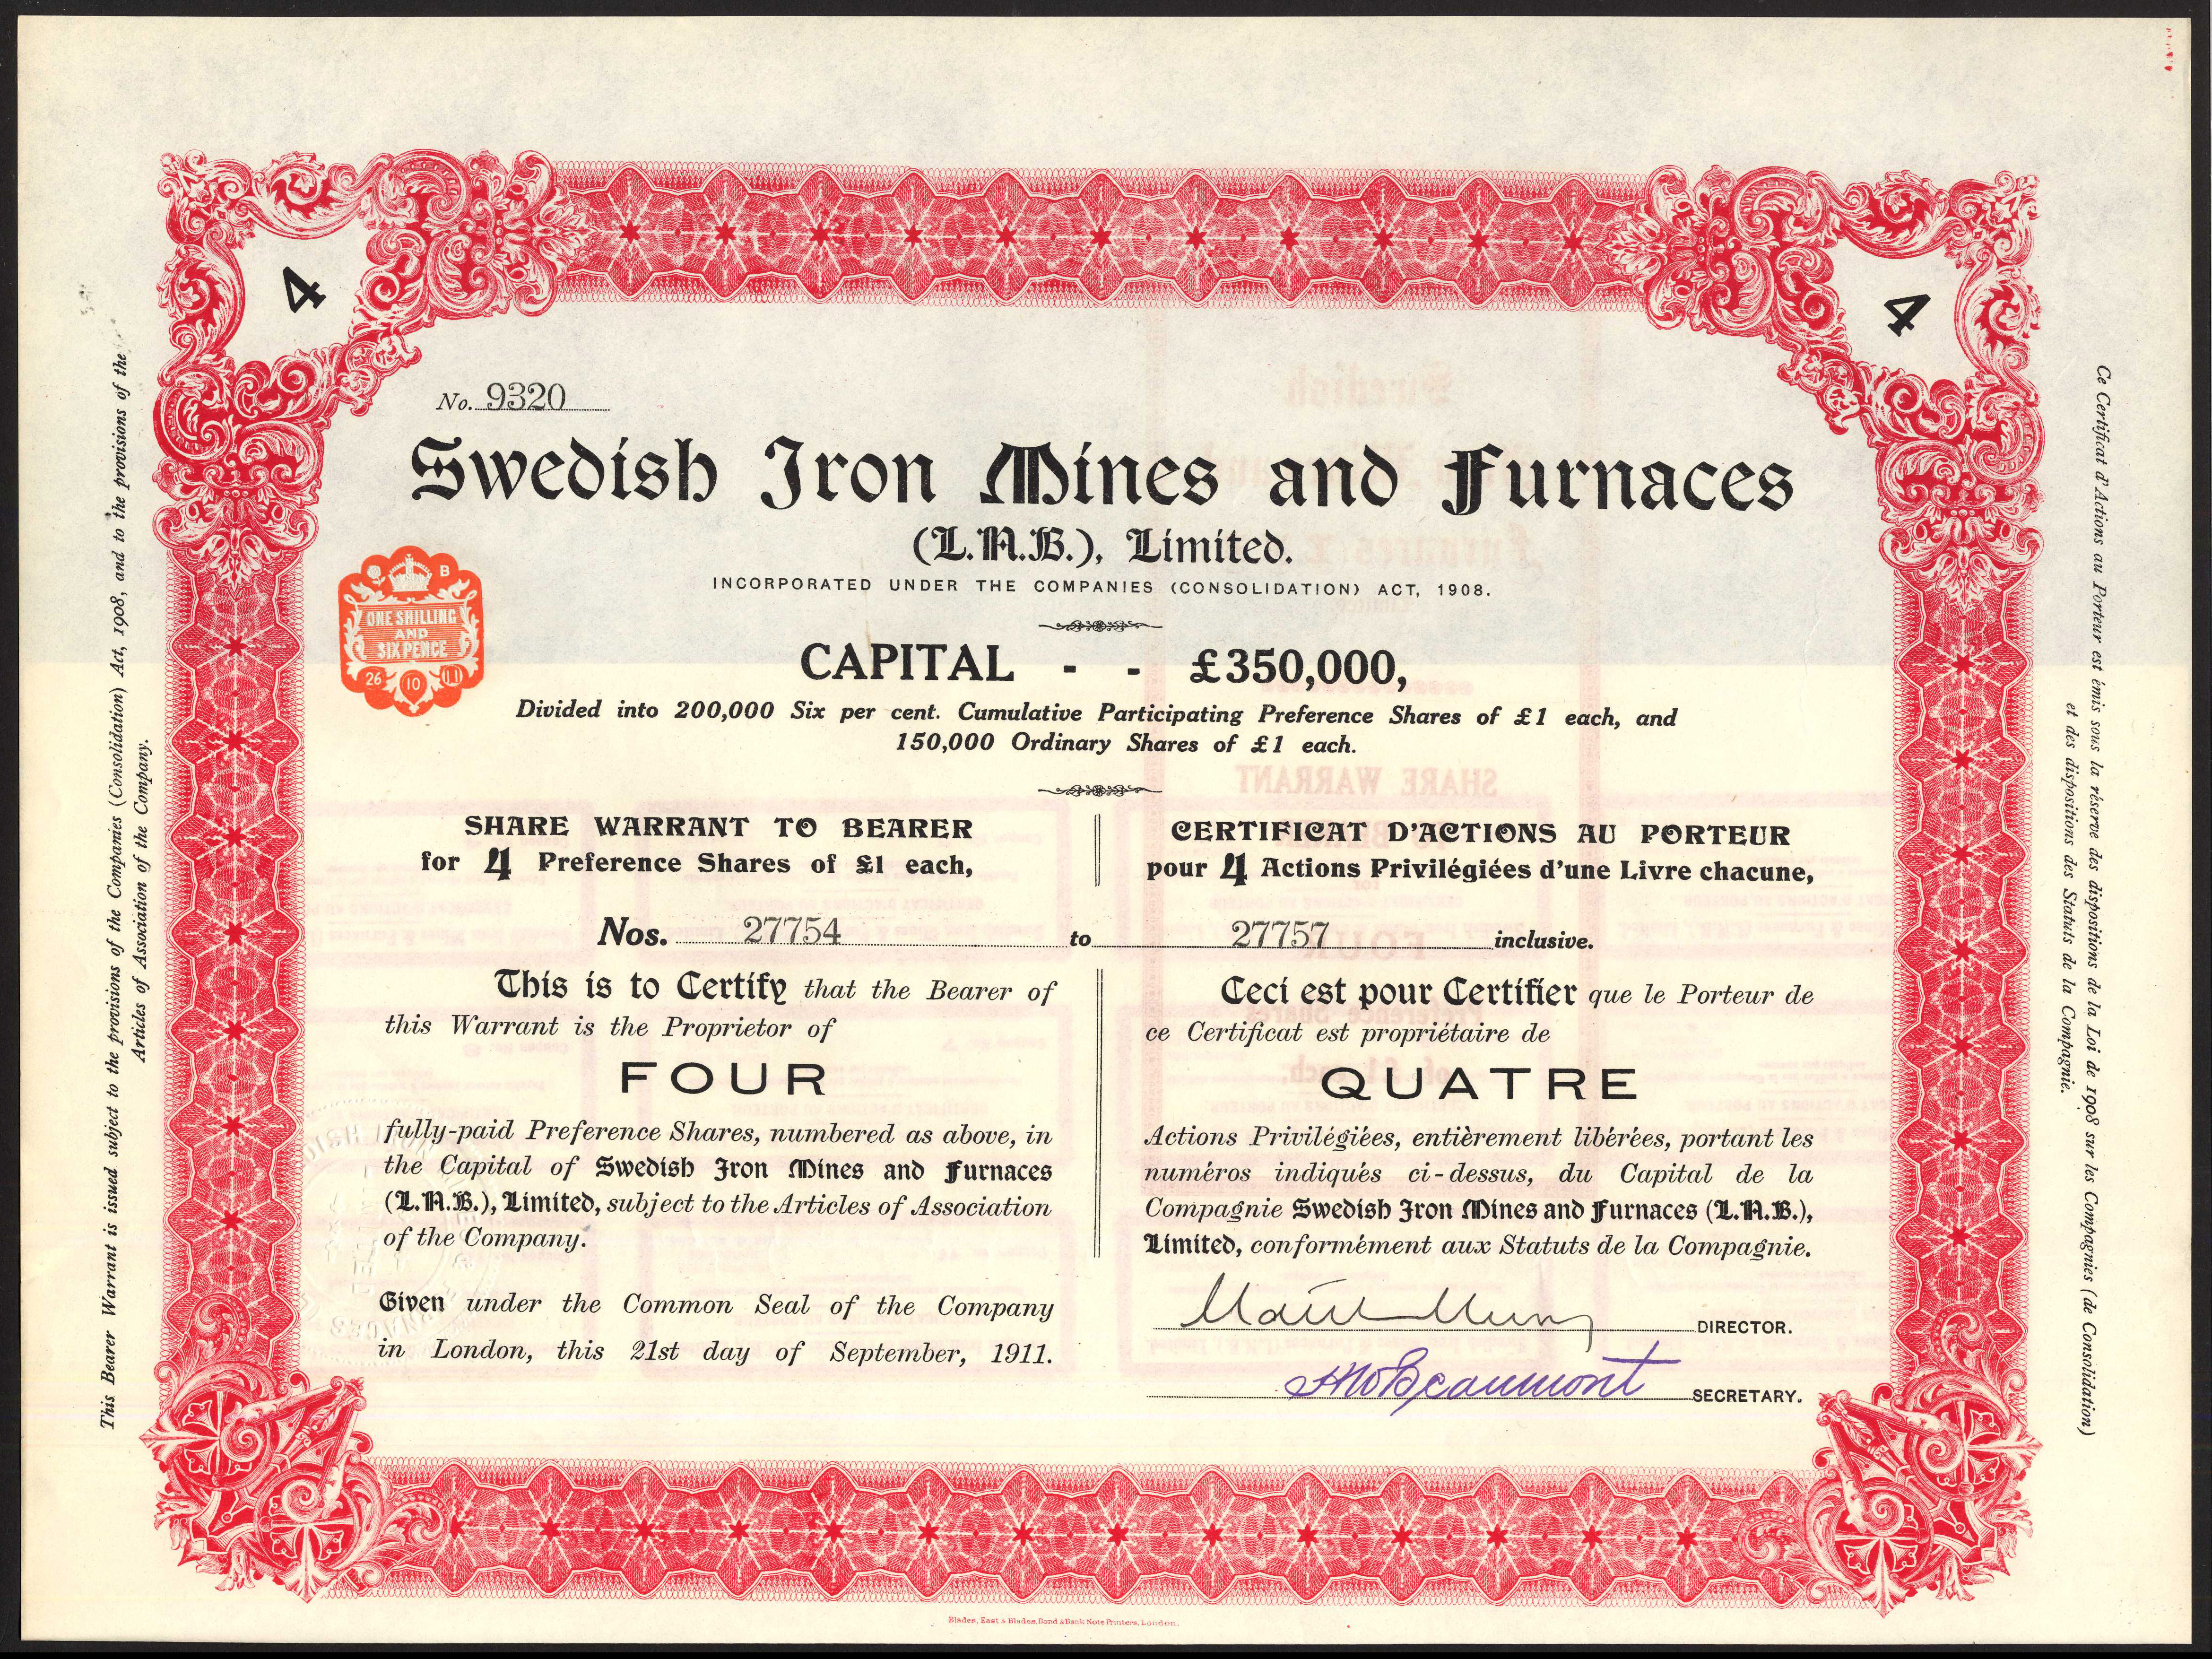 4
4
No. 9320
Swedish Iron Mines and Furnaces
(L.A.B.), Limited.
INCORPORATED UNDER THE COMPANIES (CONSOLIDATION) ACT, 1908.
B
ONE SHILLING
AND
SIXPENCE
26 10 11
CAPITAL - - £350,000,
Divided into 200,000 Six per cent. Cumulative Participating Preference Shares of £1 each, and
150,000 Ordinary Shares of £1 each.
SHARE WARRANT TO BEARER
for 4 Preference Shares of £1 each,
CERTIFICAT D'ACTIONS AU PORTEUR
pour 4 Actions Privilégiées d'une Livre chacune,
Nos. 27754 to 27757 inclusive.
This is to Certify that the Bearer of
this Warrant is the Proprietor of
FOUR
fully-paid Preference Shares, numbered as above, in
the Capital of Swedish Iron Mines and Furnaces
(L.A.B.), Limited, subject to the Articles of Association
of the Company.
Given under the Common Seal of the Company
in London, this 21st day of September, 1911.
Ceci est pour Certifier que le Porteur de
ce Certificat est propriétaire de
QUATRE
Actions Privilégiées, entièrement libérées, portant les
numéros indiqués ci-dessus, du Capital de la
Compagnie Swedish Iron Mines and Furnaces (L.A.B.),
Limited, conformément aux Statuts de la Compagnie.
DIRECTOR.
Beaumont SECRETARY.
This Bearer Warrant is issued subject to the provisions of the Companies (Consolidation) Act, 1908, and to the provisions of the
Articles of Association of the Company.
Ce Certificat d'Actions au Porteur est émis sous la réserve des dispositions de la Loi de 1908 sur les Compagnies (de Consolidation)
et des dispositions des Statuts de la Compagnie.
Blades, East & Blades, Bond & Bank Note Printers, London.